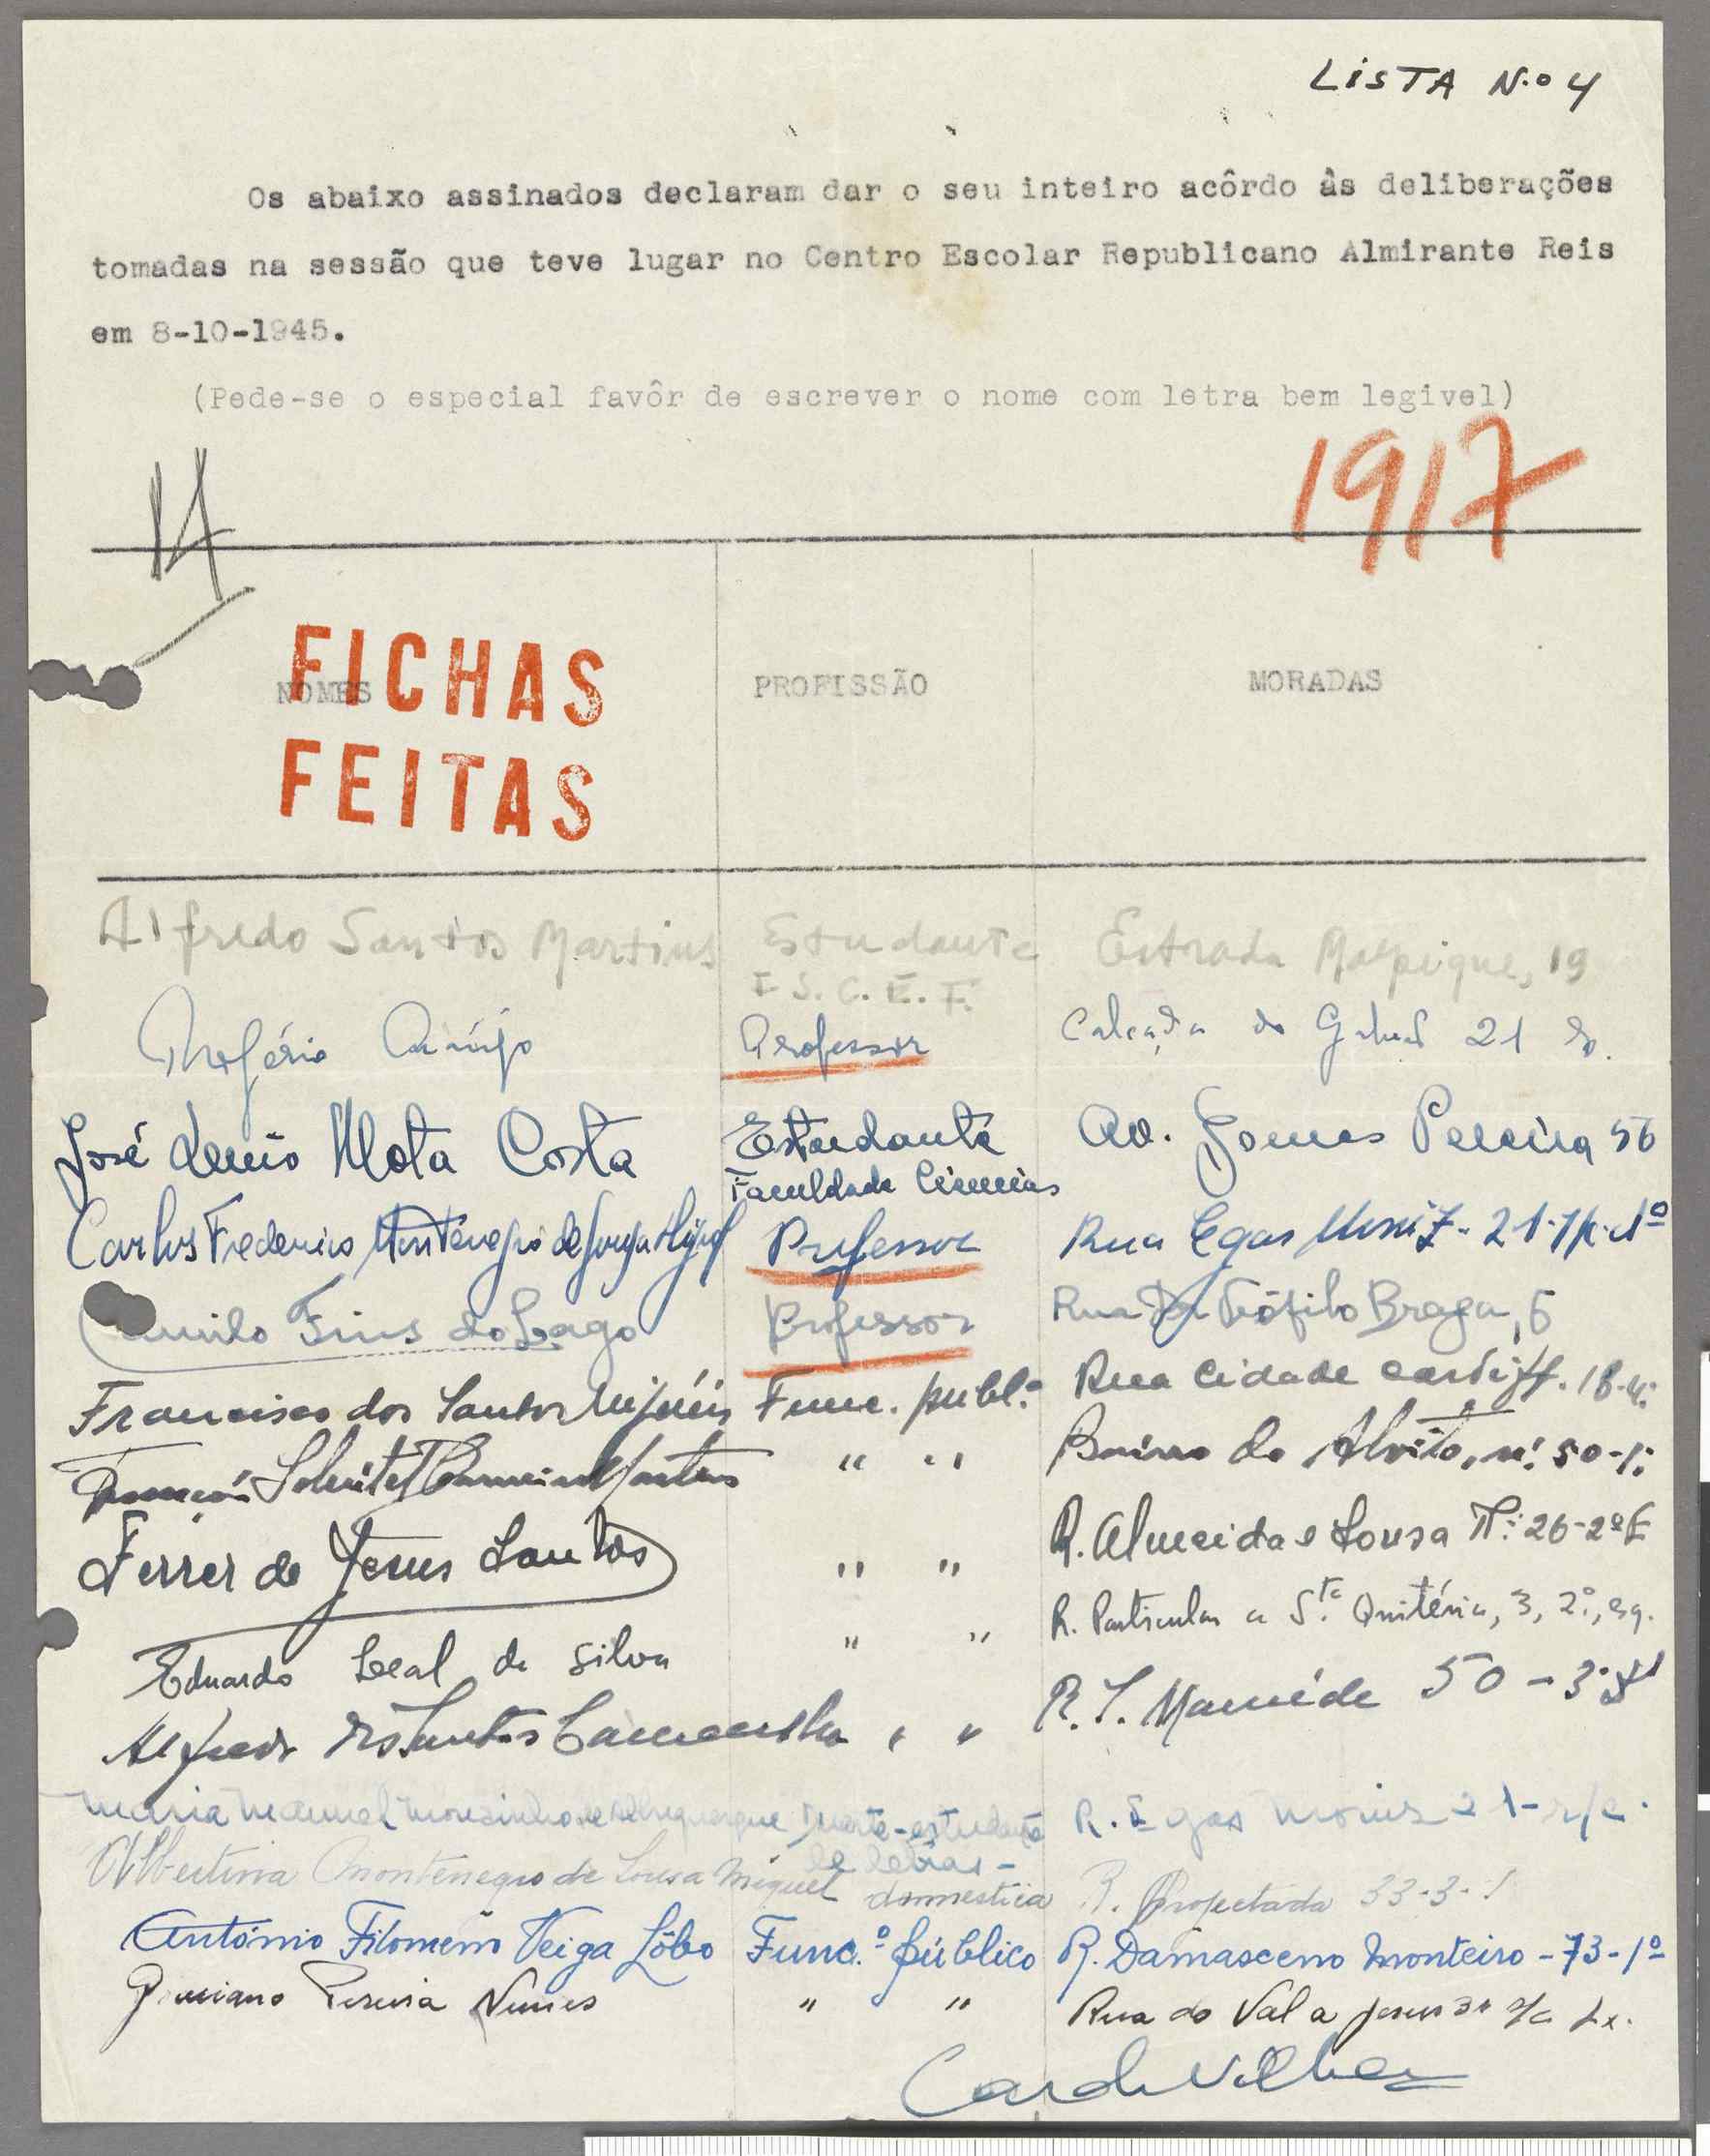 LISTA N.º 4
Os abaixo assinados declaram dar o seu inteiro acôrdo às deliberações
tomadas na sessão que teve lugar no Centro Escolar Republicano Almirante Reis
em 8-10-1945.
(Pede-se o especial favôr de escrever o nome com letra bem legivel)
1917
14
FICHAS
NOMES PROFISSÃO MORADAS
FEITAS
Alfredo Santos Martins Estudante Estrada Malpique, 19
I. S. C. E. F.
Rogério Araújo Professor Calçada do 21
José Lenio Mota Costa Estudante Av. Gomes Pereira 56
Faculdade Ciencias
Carlos Frederico Montenegro de Sousa Miguel Professor Rua Egas Moniz - 21-
Camilo do Lago Professor Rua Dr Teófilo Braga, 6
Francisco dos Santos Func. publ.º Rua Cidade Cardiff. 18-4º
Martins " " Bairro do Alvito, nº 50-1º
Ferrer de Jesus Santos " " R. Almeida e Sousa Nº 26-2º E
Eduardo Leal da Silva " " R. Particular a S.ta Quitéria, 3, 2º, esq.
Alfredo dos Santos " " R. S. Mamede 50-3º
Maria Manuel Mousinho de Albuquerque Duarte - estudante R. Egas Moniz 21-r/c.
de letras -
Albertina Montenegro de Sousa Miguel domestica R. Projectada 33-3-
António Filomeno Veiga Lôbo Func.º público R. Damasceno Monteiro - 73-1º
Pereira Nunes " " Rua do Val a Jesus r/c Lx.